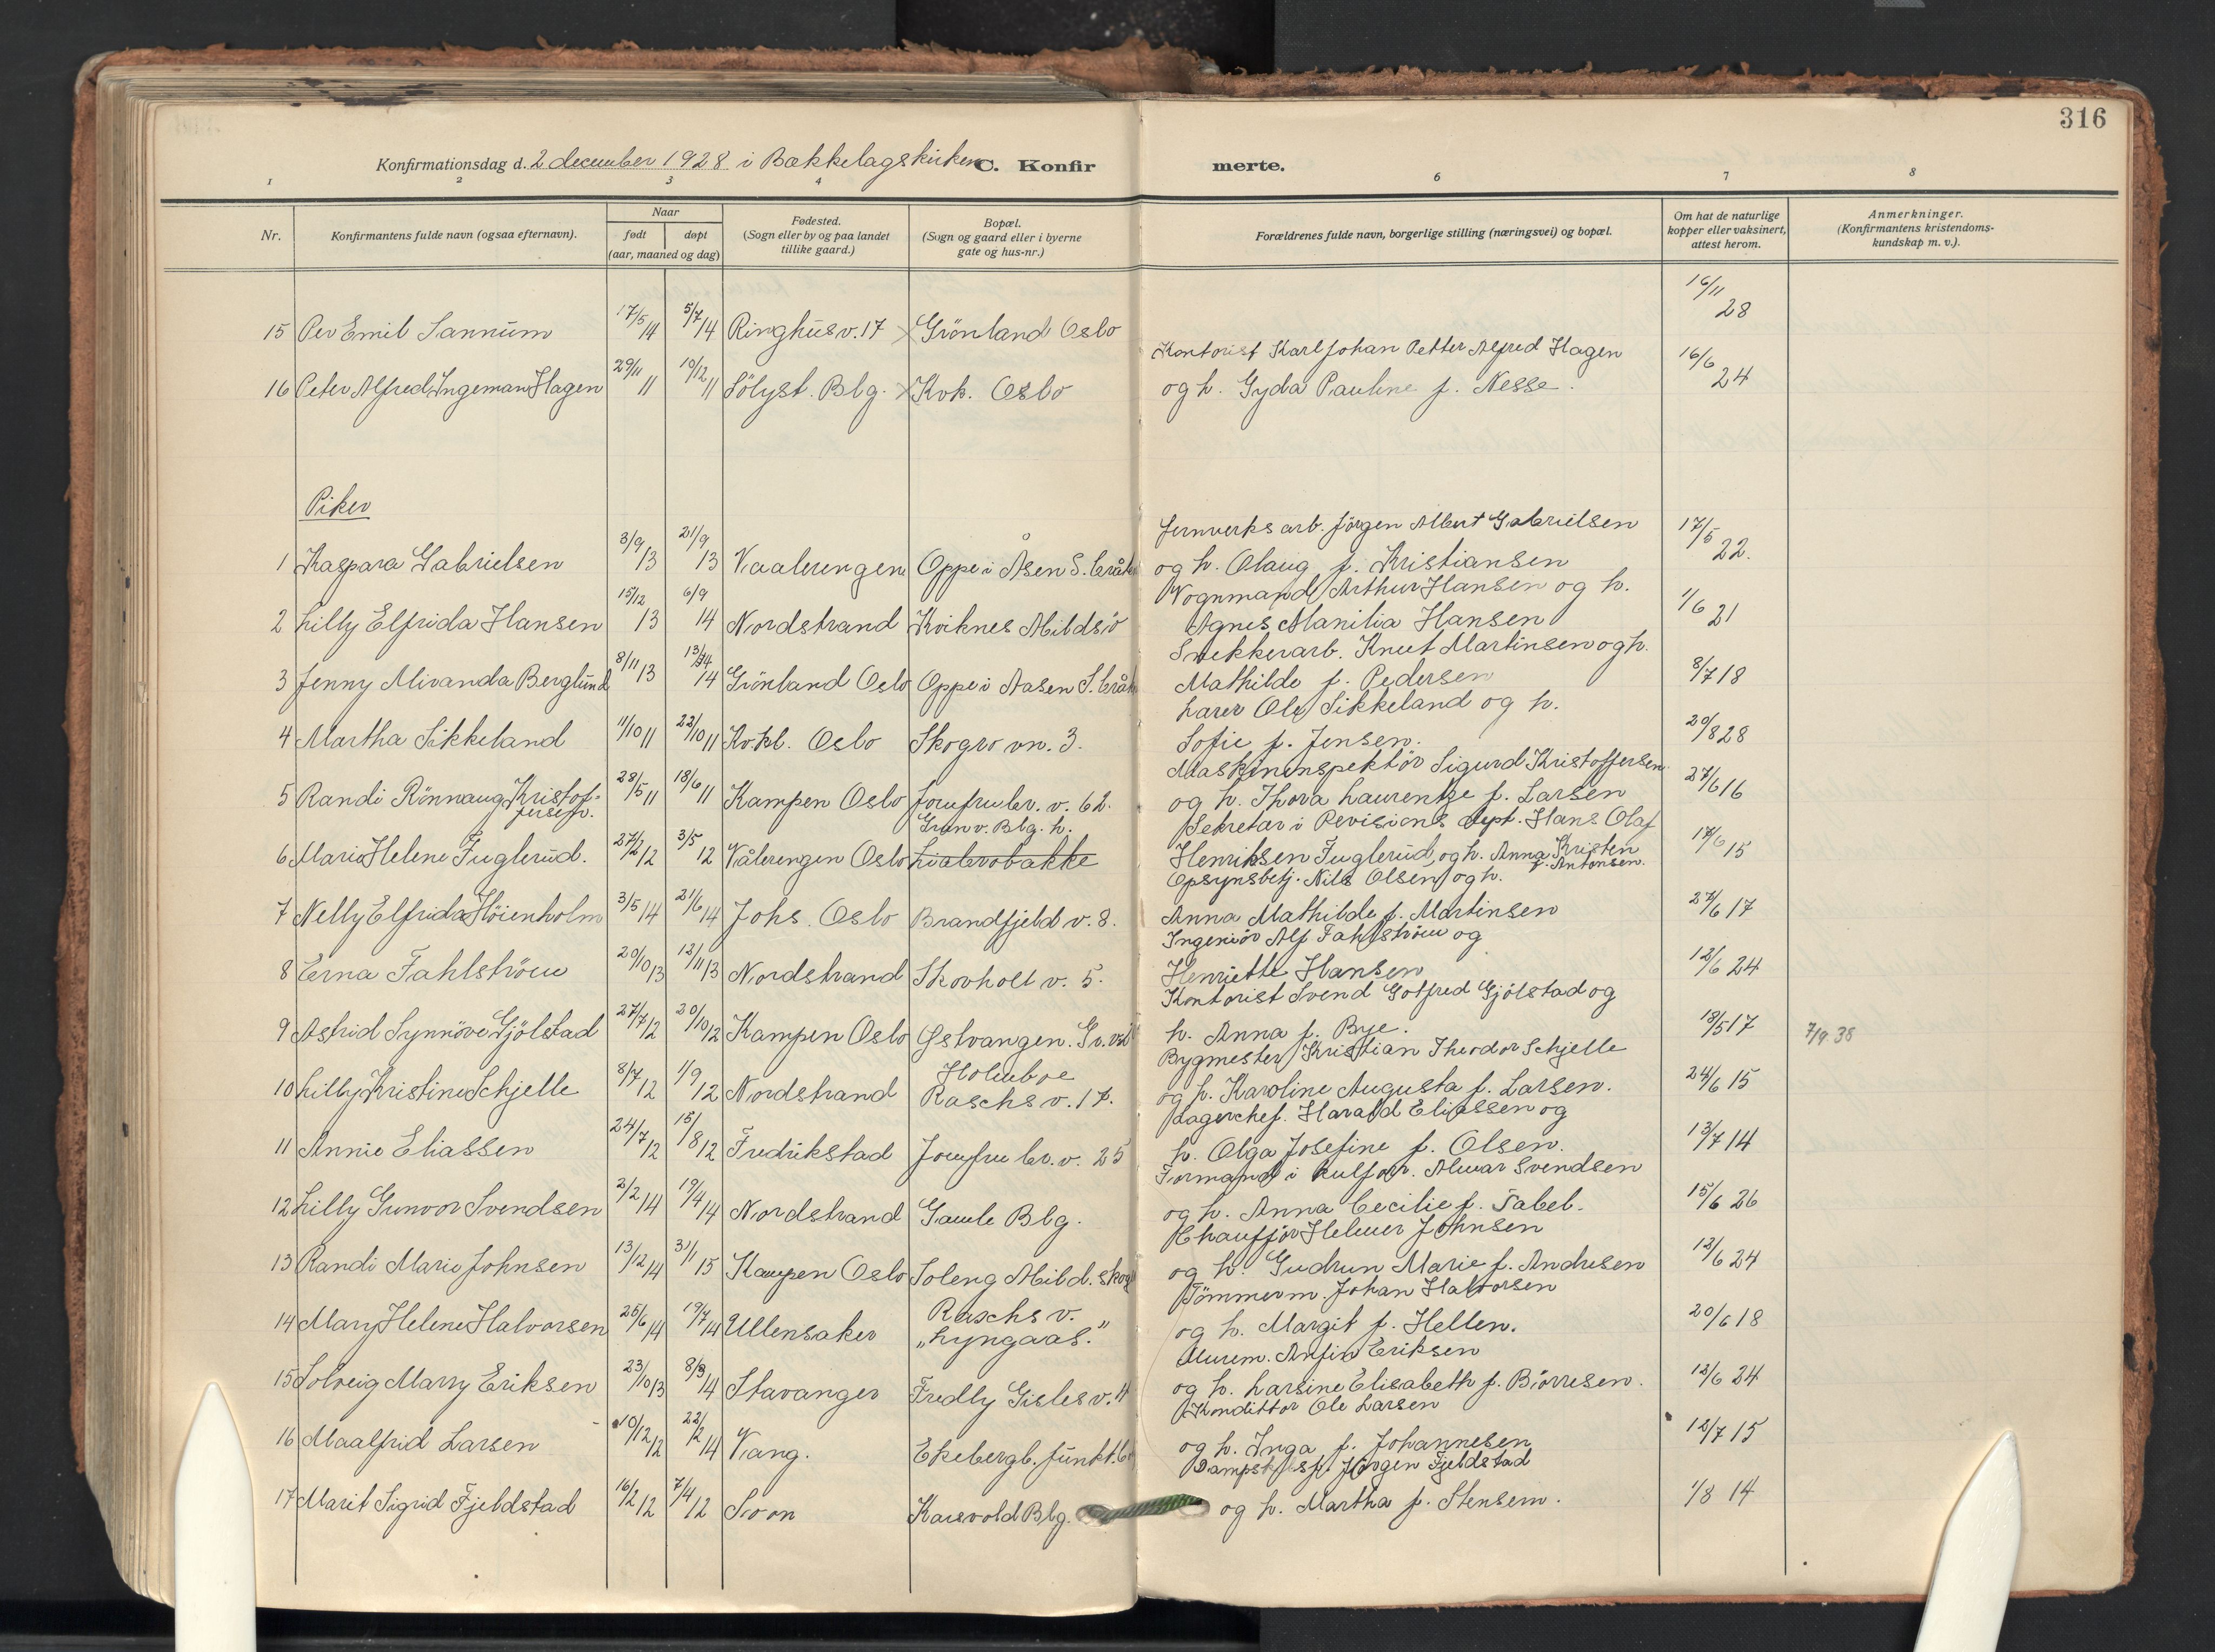 316
Konfirmationsdag d. 2 december 1928 i Bækkelagskirken C. Konfirmerte.
1 2 3 4 6 7 8
Nr. Konfirmantens fulde navn (ogsaa efternavn). Naar født døpt (aar, maaned og dag) Fødested. (Sogn eller by og paa landet tillike gaard.) Bopæl. (Sogn og gaard eller i byerne gate og hus-nr.) Forældrenes fulde navn, borgerlige stilling (næringsvei) og bopæl. Om hat de naturlige kopper eller vaksinert, attest herom. Anmerkninger. (Konfirmantens kristendomskundskap m. v.).
15 Per Emil Sannum 17/5 14 5/7 14 Ringhusv. 17 × Grönland Oslo 16/11 28
Kontorist Karl Johan Petter Alfred Hagen
16 Peter Alfred Ingeman Hagen 29/11 11 10/12 11 Sölyst. Blg. × Kvk. Oslo og h. Gyda Pauline f. Nesse. 16/6 24
Piker
Jernverksarb. Jörgen Albert Gabrielsen
1 Kaspara Gabrielsen 3/9 13 21/9 13 Vaalerengen Oppe i Åsen S. og h. Olaug f. Kristiansen 17/5 22.
Vognmand Arthur Hansen og h.
2 Lilly Elfrida Hansen 15/12 13 6/9 14 Nordstrand Kviknes Mildsö Agnes Manilia Hansen 1/6 21
Snekkerarb. Knut Martinsen og h.
3 Jenny Miranda Berglund 8/11 13 14 Grönland Oslo Oppe i Aasen S. Mathilde f. Pedersen 8/7 18
Lærer Ole Sikkeland og h.
4 Martha Sikkeland 11/10 11 22/10 11 Kv.kl. Oslo Skogro vn. 3. Sofie f. Jensen. 20/8 28
Maskininspektör Sigurd Kristoffersen
5 Randi Rönnaug Kristoffersen. 28/5 11 18/6 11 Kampen Oslo Jomfrubr. v. 62. og h. Thora Laurentze f. Larsen 27/6 16
Grunv. Blg. h. Sekretær i Revisions dept. Hans Olaf
6 Marie Helene Fuglerud. 27/2 12 3/5 12 Vålerengen Oslo Liabrobakke Henriksen Fuglerud, og h. Anna Kristen f. Antonsen. 17/6 15
Opsynsbetj. Nils Olsen og h.
7 Nelly Elfrida Höienholm 3/5 14 21/6 14 Johs. Oslo Brandfjeld v. 8. Anna Mathilde f. Martinsen 27/6 17
Ingeniör Alf Fahlström og
8 Erna Fahlström 20/10 13 12/11 13 Nordstrand Skovholt v. 5. Henriette Hansen 12/6 24
Kontorist Svend Gotfred Gjölstad og
9 Astrid Synnöve Gjölstad 27/7 12 20/10 12 Kampen Oslo Östvangen. h. Anna f. Bye. 18/5 17 7/9 38
Holmboe Bygmester Kristian Theodor Schjelle
10 Lilly Kristine Schjelle 8/7 12 1/9 12 Nordstrand Raschs v. 17. og h. Karoline Augusta f. Larsen. 24/6 15
Lagerchef. Harald Eliassen og
11 Annie Eliassen 24/7 12 15/8 12 Fredrikstad Jomfrubr. v. 25 h. Olga Josefine f. Olsen. 13/7 14
Formand i kulforr. Alwar Svendsen
12 Lilly Gunvor Svendsen 2/2 14 19/4 14 Nordstrand Gamle Blg. og h. Anna Cecilie f. Tabel. 15/6 26
Chauffjör Helmer Johnsen
13 Randi Marie Johnsen 13/12 14 31/1 15 Kampen Oslo Soleng Mild. skog og h. Gudrun Marie f. Andresen 12/6 24
Raschs v. Tömmerm. Johan Halvorsen
14 Mary Helene Halvorsen 25/6 14 19/7 14 Ullensaker "Lyngaas." og h. Margit f. Hellen. 20/6 18
Murem. Anfin Eriksen
15 Solveig Marry Eriksen 23/10 13 8/3 14 Stavanger Fredly Gisles v. 4 og h. Larsine Elisabeth f. Biörresen. 12/6 24
Kondittor Ole Larsen
16 Maalfrid Larsen 10/12 12 22/2 14 Vang. Ekebergb. funkt. og h. Inga f. Johannesen 12/7 15
Jörgen Fjeldstad
17 Marit Sigrid Fjeldstad 16/2 12 7/4 12 Soon Karsvold Blg. og h. Martha f. Stensem. 1/8 14